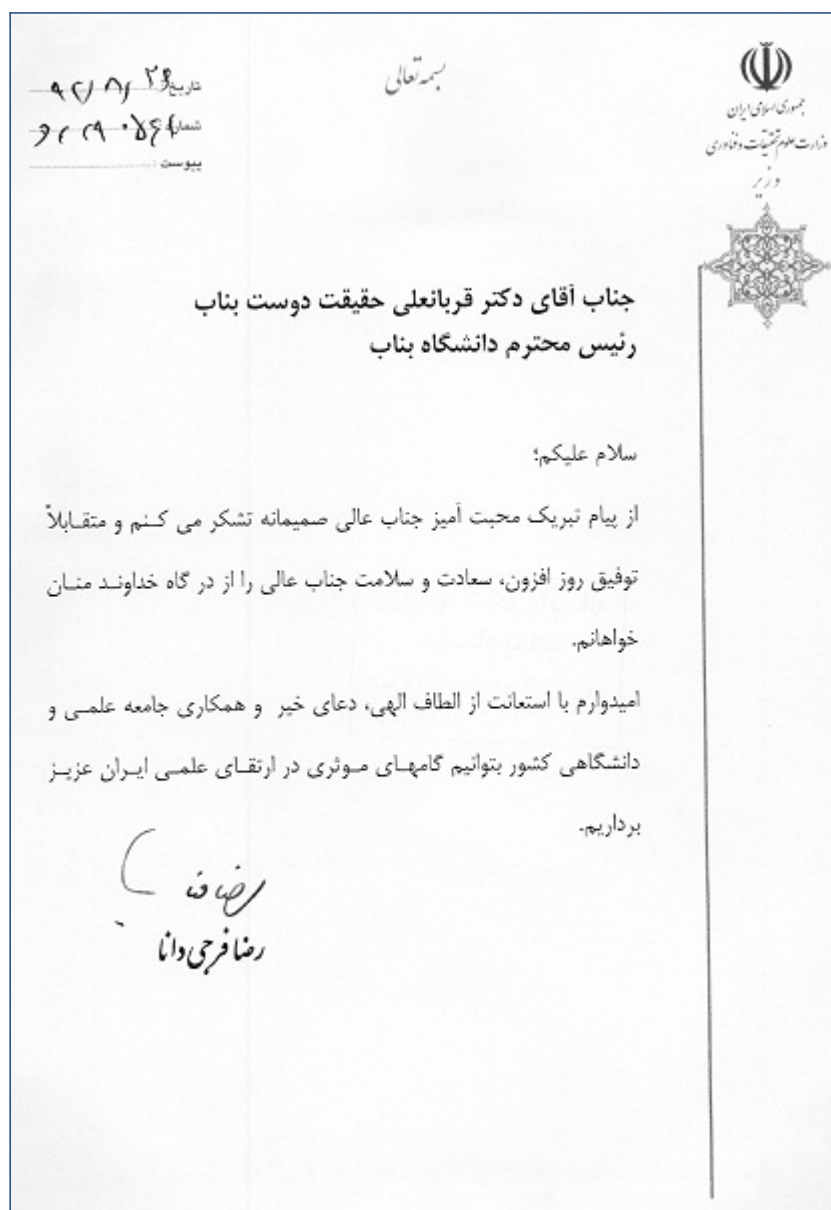 بسمه تعالی
جمهوری اسلامی ایران
وزارت علوم تحقیقات و فناوری
وزیر
تاریخ
شماره
پیوست :
جناب آقای دکتر قربانعلی حقیقت دوست بناب
رئیس محترم دانشگاه بناب
سلام علیکم؛
از پیام تبریک محبت آمیز جناب عالی صمیمانه تشکر می کنم و متقابلاً
توفیق روز افزون، سعادت و سلامت جناب عالی را از در گاه خداوند منان
خواهانم.
امیدوارم با استعانت از الطاف الهی، دعای خیر و همکاری جامعه علمی و
دانشگاهی کشور بتوانیم گامهای موثری در ارتقای علمی ایران عزیز
برداریم.
رضا فرجی دانا